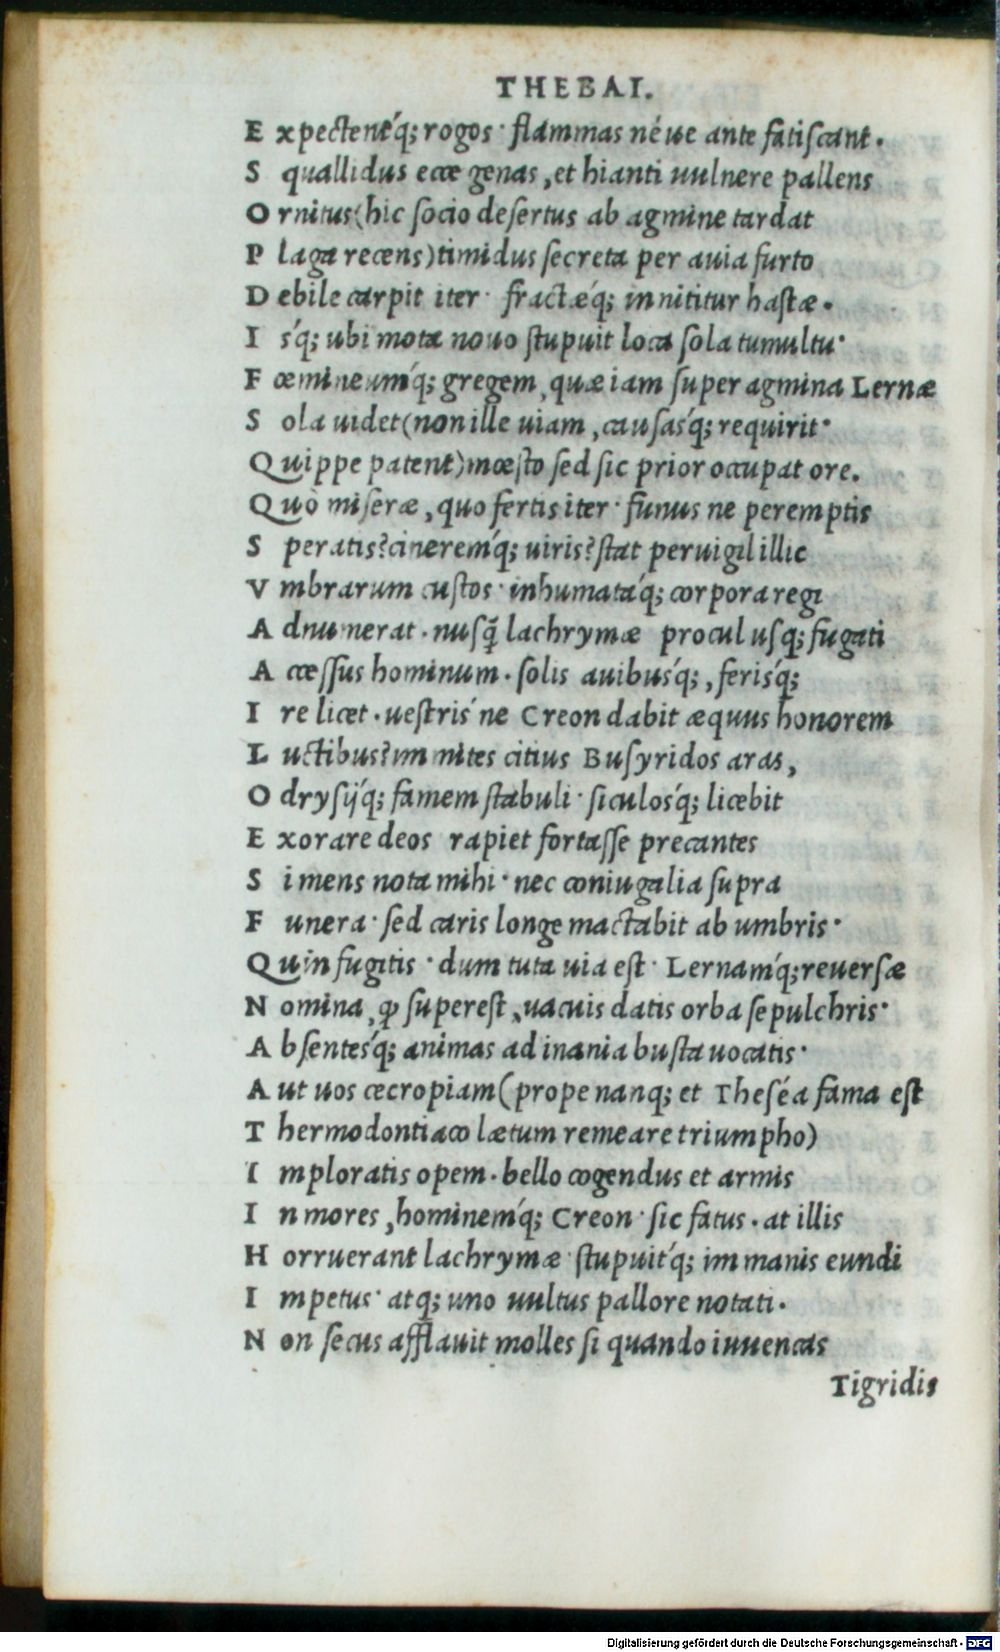 THEBAI.
E xpectent'q; rogos· flammas né ue ante fatiscant.
S quallidus ecce genas, et hianti uulnere pallens
O rnitus(hic socio desertus ab agmine tardat
P laga recens)timidus secreta per auia furto
D ebile carpit iter· fractæ'q; innititur hastæ.
I s'q; ubi mota nouo stupuit loca sola tumultu·
F œmineum'q; gregem, quæ iam super agmina Lernæ
S ola uidet(non ille uiam, causas'q; requirit·
Q uippe patent)mœsto sed sic prior occupat ore.
Q uò miseræ, quo fertis iter· funus ne peremptis
S peratis?cinerem'q; uiris?stat peruigil illic
V mbrarum custos· inhumata'q; corpora regi
A dnumerat. nusq̃ lachrymæ procul usq; fugati
A ccessus hominum. solis auibus'q;, feris'q;
I re licet. uestris' ne Creon dabit æquus honorem
L uctibus?immites citius Busyridos aras,
O drysij'q; famem stabuli· siculos'q; licebit
E xorare deos rapiet fortasse precantes
S i mens nota mihi· nec coniugalia supra
F unera· sed caris longe mactabit ab umbris·
Q uin fugitis· dum tuta uia est· Lernam'q; reuersæ
N omina, ꝙ superest, uacuis datis orba sepulchris·
A bsentes'q; animas ad inania busta uocatis·
A ut uos cecropiam(prope nanq; et Theséa fama est
T hermodontiaco lætum remeare triumpho)
I mploratis opem. bello cogendus et armis
I n mores, hominem'q; Creon· sic fatus. at illis
H orruerant lachrymæ· stupuit'q; immanis eundi
I mpetus· atq; uno uultus pallore notati.
N on secus afflauit molles si quando iuuencas
Tigridis
Digitalisierung gefördert durch die Deutsche Forschungsgemeinschaft - DFG